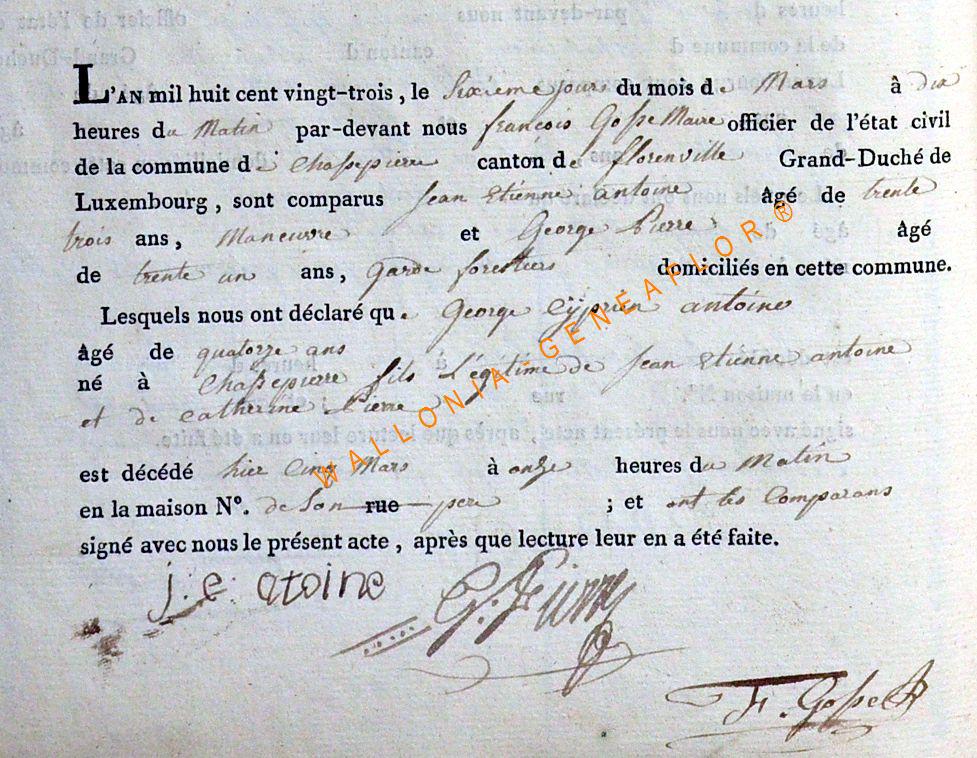 L'AN mil huit cent vingt-trois, le Sixième jour du mois de Mars à dix
heures du Matin par-devant nous françois Gosse Maire officier de l'état civil
de la commune de Chassepierre canton de florenville Grand-Duché de
Luxembourg, sont comparus Jean Etienne antoine âgé de trente
trois ans, Maneuvre et George Pierre âgé
de trente un ans, garde forestiers domiciliés en cette commune.
Lesquels nous ont déclaré que George Cyprien antoine
âgé de quatorze ans
né à Chassepierre fils légitime de Jean Etienne antoine
et de catherine Pierre
est décédé hier cinq Mars à onze heures du Matin
en la maison N°. de Son rue pere ; et ont les Comparans
signé avec nous le présent acte, après que lecture leur en a été faite.
j. e. atoine
G. Pierre
F. Gosse
WALLONIA-GENEAFLOR ®